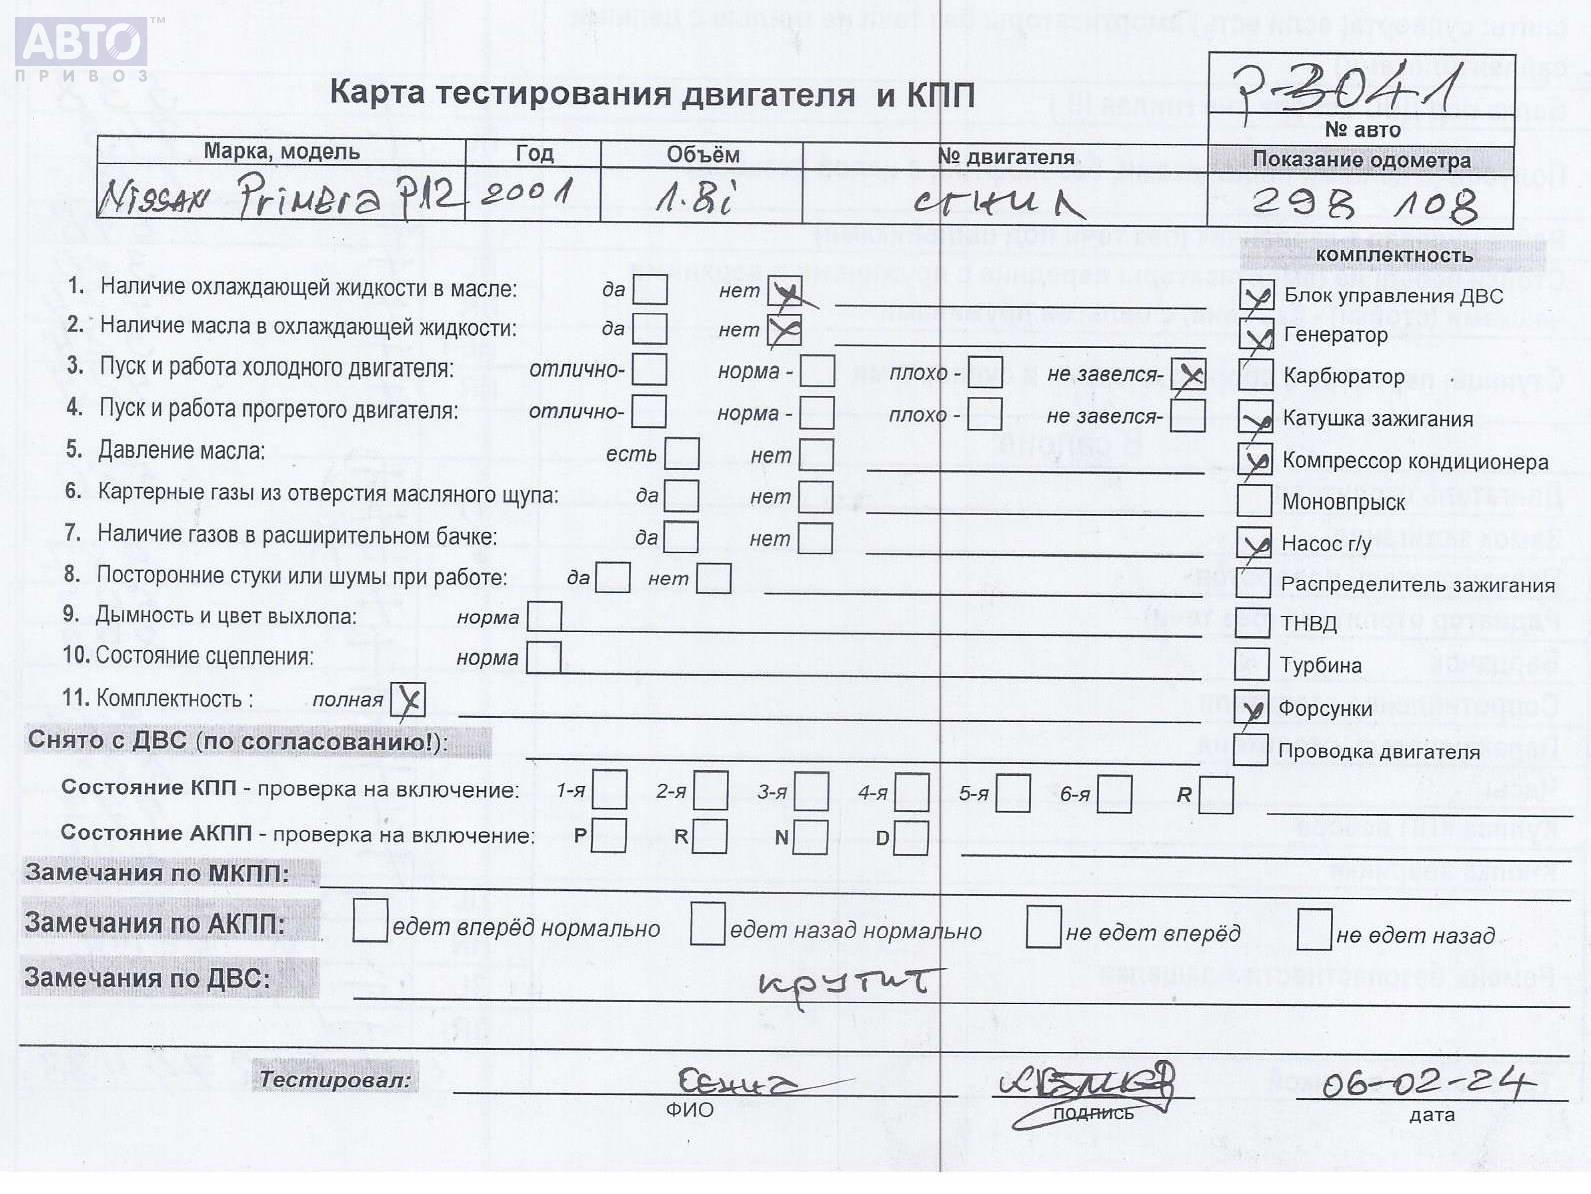 АВТО™
ПРИВОЗ
Карта тестирования двигателя и КПП
Р-3041
№ авто
Марка, модель Год Объём № двигателя Показание одометра
Nissan Primera P12 2001 1.8i сгнил 298 108
комплектность
1. Наличие охлаждающей жидкости в масле: да нет
Блок управления ДВС
2. Наличие масла в охлаждающей жидкости: да нет
Генератор
3. Пуск и работа холодного двигателя: отлично- норма - плохо - не завелся-
Карбюратор
4. Пуск и работа прогретого двигателя: отлично- норма - плохо - не завелся-
Катушка зажигания
5. Давление масла: есть нет
Компрессор кондиционера
6. Картерные газы из отверстия масляного щупа: да нет
Моновпрыск
7. Наличие газов в расширительном бачке: да нет
Насос г/у
8. Посторонние стуки или шумы при работе: да нет
Распределитель зажигания
9. Дымность и цвет выхлопа: норма
ТНВД
10. Состояние сцепления: норма
Турбина
11. Комплектность : полная
Форсунки
Снято с ДВС (по согласованию!):
Проводка двигателя
Состояние КПП - проверка на включение: 1-я 2-я 3-я 4-я 5-я 6-я R
Состояние АКПП - проверка на включение: P R N D
Замечания по МКПП:
Замечания по АКПП: едет вперёд нормально едет назад нормально не едет вперёд не едет назад
Замечания по ДВС: крутит
Тестировал: 06-02-24
ФИО подпись дата